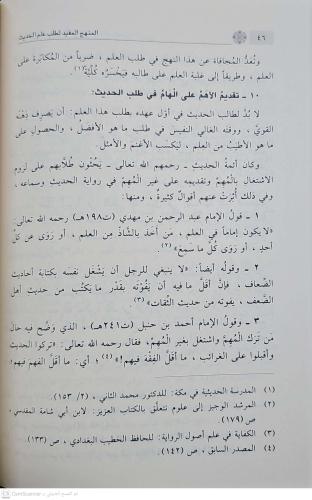 ٤٦ المنهج المفيد لطلب علم الحديث
وتُعَدُّ المُجافاة عن هذا النهج في طلب العلم ، ضرباً من المكاثرة على
العلم ، وطريقاً إلى غلبة العلم على طالبه فيَخْسَرُه كُلِّيَّةً(١).
١٠ - تقديم الأهَمِّ على الهَامِّ في طلب الحديث:
لا بُدَّ لطالب الحديث في أوَّل عهده بطلب هذا العلم: أن يَصرِف ذِهْنَه
القويَّ ، ووقته الغالي النفيس في طلب ما هو الأفضل ، والحصول على
ما هو الأطيَب من العلم ، ليكسَب الأغنم والأمثل.
وكان أئمةُ الحديث ـ رحمهم الله تعالى ـ يَحُثُّون طُلَّابهم على لزوم
الاشتغال بالْمُهِمِّ وتقديمه على غير المُهِمِّ في رواية الحديث وسماعه ،
وفي ذلك أُثِرَتْ عنهم أقوالٌ كثيرةٌ ، ومنها:
١ - قولُ الإمام عبد الرحمن بن مهدي (ت١٩٨هـ) رحمه الله تعالى:
«لا يكون إماماً في العلم ، مَن أخَذ بالشَّاذِ مِن العلم ، أو رَوَى عن كلِّ
أحدٍ ، أو رَوَى كُلَّ ما سَمِعَ»(٢).
٢ - وقولُه أيضاً: «لا ينبغي للرجل أن يَشْغَل نفسَه بكتابة أحاديث
الضِّعاف ، فإنَّ أقلَّ ما فيه أن يَفُوْتَه بقَدْر ما يَكتُب من حديث أهل
الضَّعف ، يفوته من حديث الثِّقات»(٣).
٣ - وقولُ الإمام أحمد بن حنبل (ت٢٤١هـ) ، الذي وَضَّح فيه حالَ
مَن تَرَك المُهِمَّ واشتغل بغير المُهِمِّ ، فقال رحمه الله تعالى: «تركوا الحديث
وأقبلوا على الغرائب ، ما أقَلَّ الفِقْهَ فيهم!»(٤) ؛ أي: ما أقلَّ الفَهْمَ فيهم!
(١) المدرسة الحديثية في مكة: للدكتور محمد الثاني ، (٢/ ١٥٣).
(٢) المرشد الوجيز إلى علوم تتعلَّق بالكتاب العزيز: لابن أبي شامة المقدسي ،
ص (١٧٩).
(٣) الكفاية في علم أصول الرواية: للحافظ الخطيب البغدادي ، ص (١٣٣).
(٤) المصدر السابق ، ص (١٤٢).
CamScanner